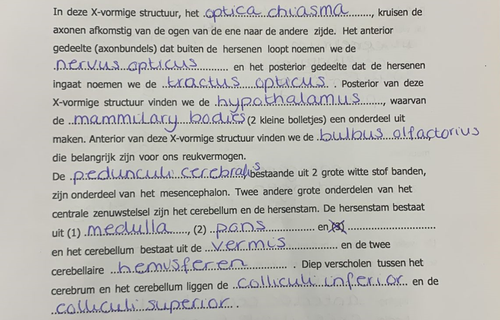 In deze X-vormige structuur, het optica chiasma, kruisen de
axonen afkomstig van de ogen van de ene naar de andere zijde. Het anterior
gedeelte (axonbundels) dat buiten de hersenen loopt noemen we de
nervus opticus en het posterior gedeelte dat de hersenen
ingaat noemen we de tractus opticus. Posterior van deze
X-vormige structuur vinden we de hypothalamus, waarvan
de mammilary bodies (2 kleine bolletjes) een onderdeel uit
maken. Anterior van deze X-vormige structuur vinden we de bulbus olfactorius
die belangrijk zijn voor ons reukvermogen.
De pedunculi cerebralis bestaande uit 2 grote witte stof banden,
zijn onderdeel van het mesencephalon. Twee andere grote onderdelen van het
centrale zenuwstelsel zijn het cerebellum en de hersenstam. De hersenstam bestaat
uit (1) medulla, (2) pons en (3)
en het cerebellum bestaat uit de vermis en de twee
cerebellaire hemisferen. Diep verscholen tussen het
cerebrum en het cerebellum liggen de colliculi inferior en de
colliculi superior.